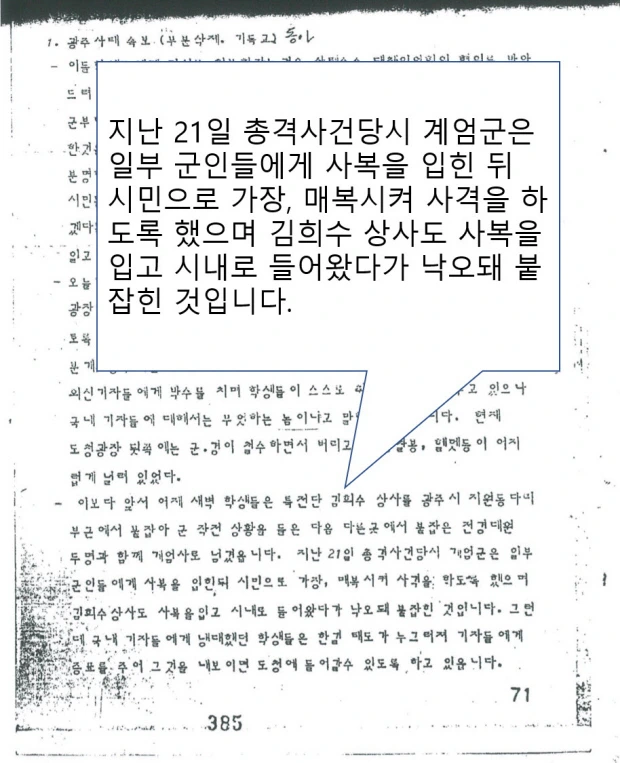 1. 광주사태 속보 (부분삭제. 기독교) 동아
- 이들
드러
군부
한것
분명
시민
겠다
있고
지난 21일 총격사건당시 계엄군은
일부 군인들에게 사복을 입힌 뒤
시민으로 가장, 매복시켜 사격을 하
도록 했으며 김희수 상사도 사복을
입고 시내로 들어왔다가 낙오돼 붙
잡힌 것입니다.
- 오늘
광장
토록
분개
외신기자들에게 박수를 치며 학생들이 스스로 고 있으나
국내 기자들에 대해서는 무엇하는 놈이냐고 말 니다. 현재
도청광장 뒷쪽에는 군.경이 철수하면서 버리고 봉, 헬멧등이 어지
럽게 널려 있었다.
- 이보다 앞서 어제 새벽 학생들은 특전단 김희수 상사를 광주시 지원동다리
부근에서 붙잡아 군 작전 상황을 들은 다음 다른곳에서 붙잡은 전경대원
두명과 함께 계엄사로 넘겼읍니다. 지난 21일 총격사건당시 계엄군은 일부
군인들에게 사복을 입힌뒤 시민으로 가장, 매복시켜 사격을 하도록 했으며
김희수상사도 사복을입고 시내로 들어왔다가 낙오돼 붙잡힌 것입니다. 그런
데 국내 기자들에게 냉대했던 학생들은 한결 태도가 누그러져 기자들에게
증표를 주어 그것을 내보이면 도청에 들어갈수 있도록 하고 있읍니다.
71
385